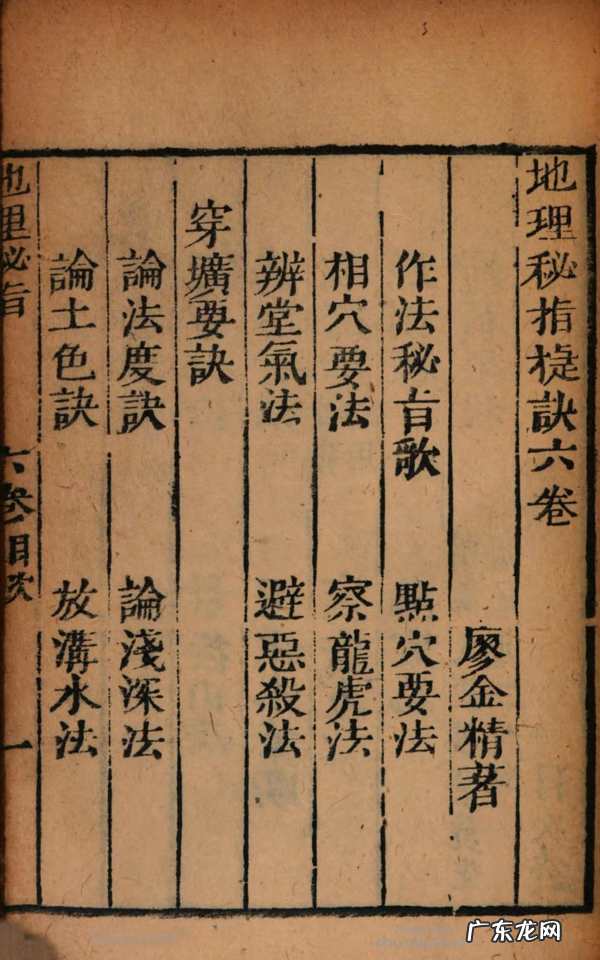 地理秘指㨗訣六卷
廖金精著
作法秘旨歌　點穴要法
相穴要法　察龍虎法
辨堂氣法　避惡殺法
穿壙要訣
論法度訣　論淺深法
論土色訣　放溝水法
地理秘旨　六卷　目次　一
广东龙网